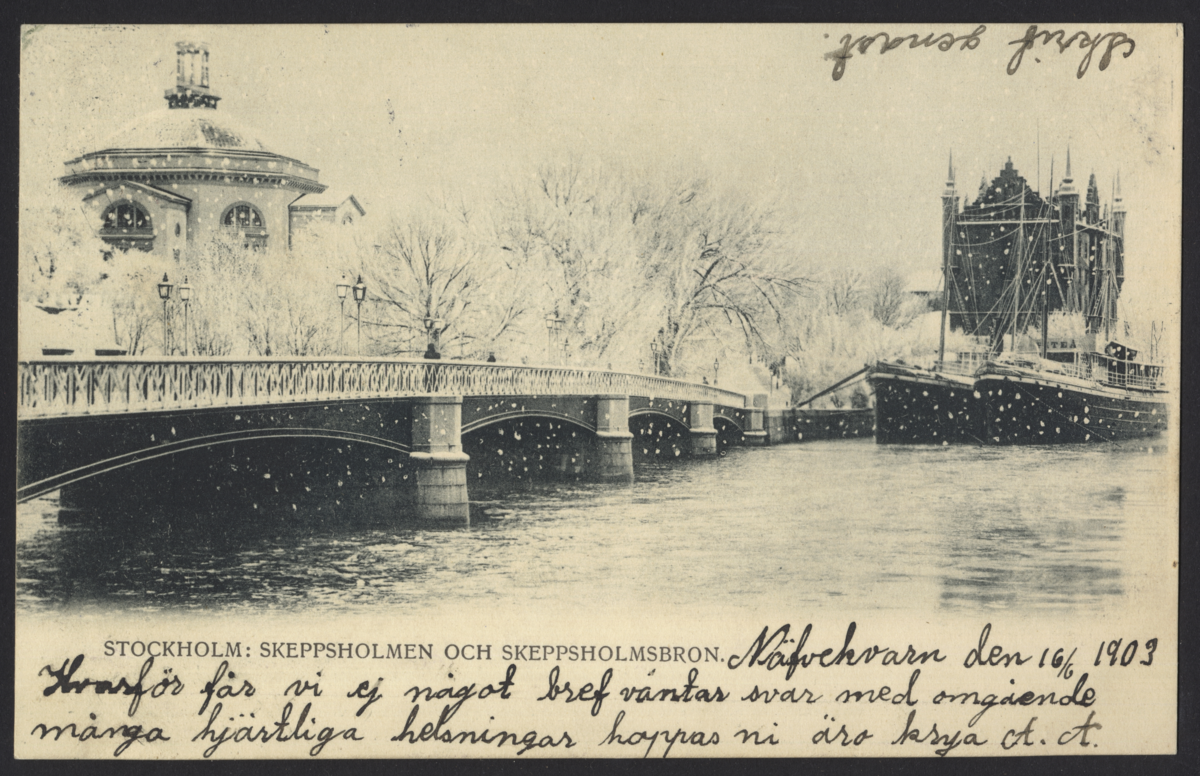 Skrif genast.
TEA
STOCKHOLM: SKEPPSHOLMEN OCH SKEPPSHOLMSBRON. Näfvekvarn den 16/6 1903
Hvarför får vi ej något bref väntar svar med omgående
många hjärtliga helsningar hoppas ni äro krya A. A.